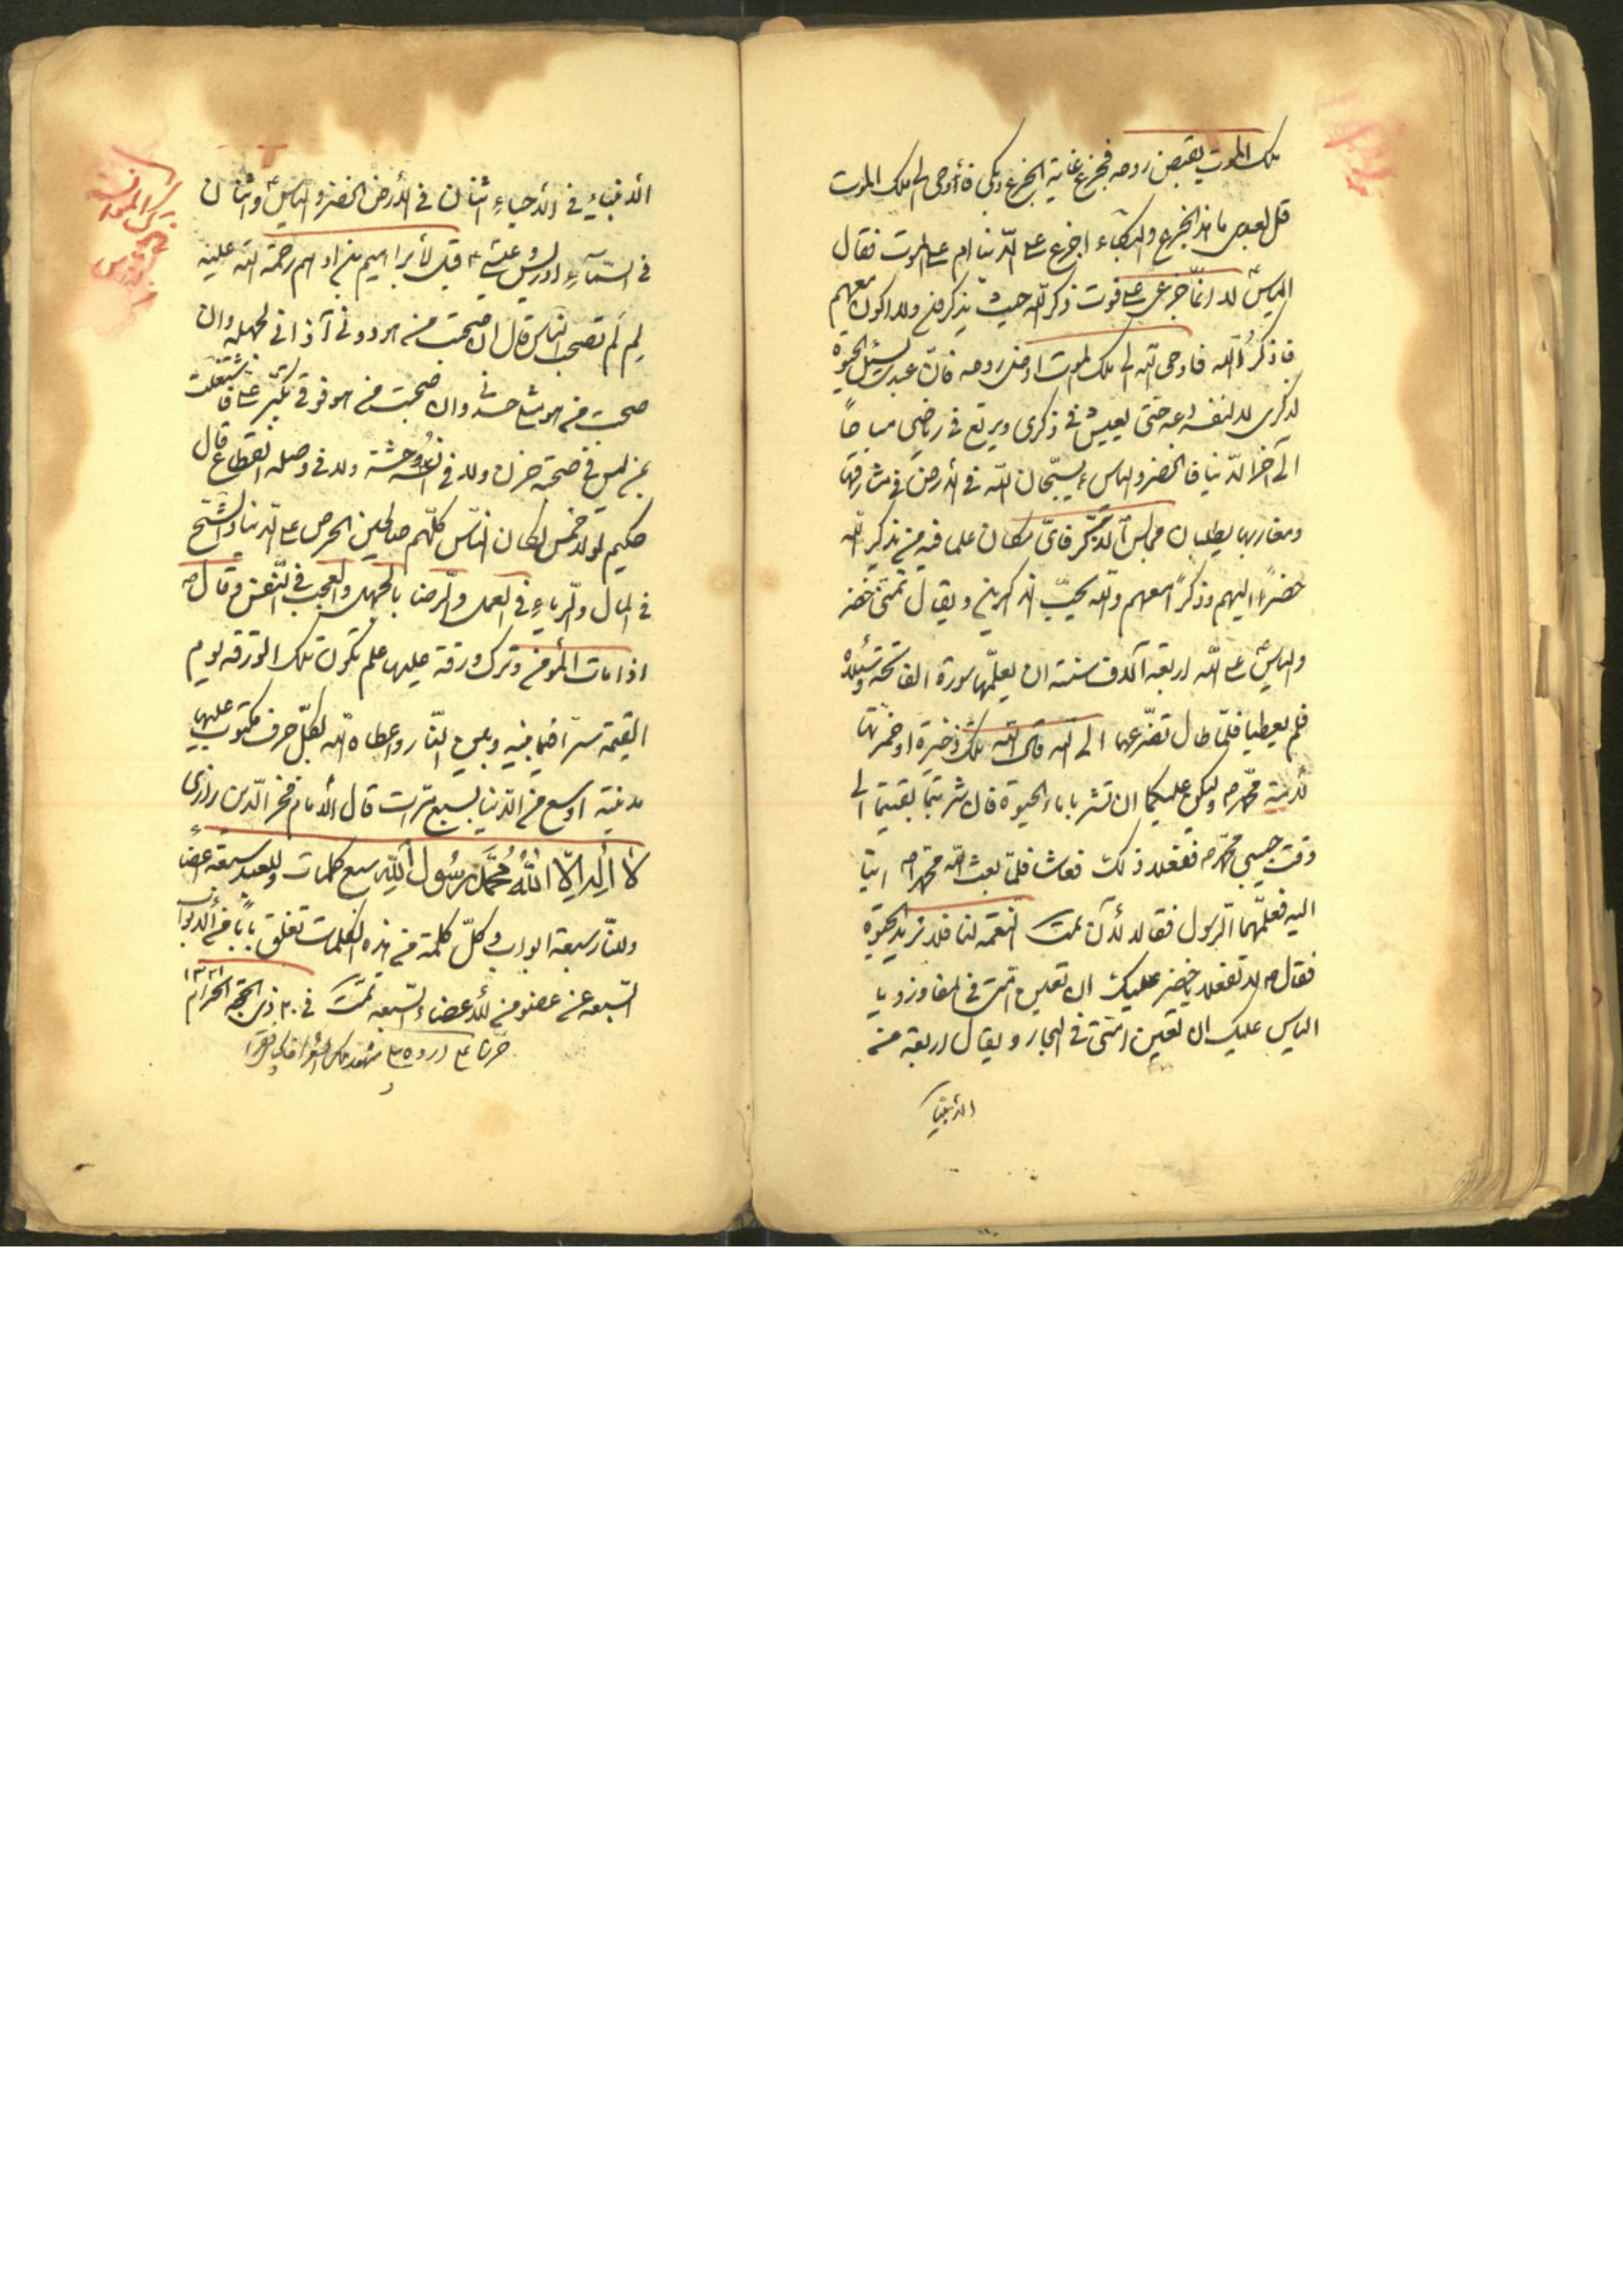 ملك الموت يقبض روحه فجزع غاية الجزع وبكى فأوحى الى ملك الموت
قل لعبدى ما هذا الجزع والبكاء اجزع على الدنيا ام على الموت فقال
الياسؑ لا انّما جزعى على فوت ذكر اللّه حيث يذكرونه ولا اكون معهم
فاذكرُ اللّه فاوحى اللّه الى ملك الموت روحه فانّ عبدى يسئل الحيوة
لذكرى لا لنفسه دعه حتى يعيش فى ذكرى ويرتع فى رياضى
الى آخر الدّنيا فالخضر والياسؑ يسبّحان اللّه فى الارض فى مشارقها
ومغاربها يطلبان مجالس الذكر فاىّ مكان علما فيه من يذكر اللّه
حضرا اليهم وذكرا معهم واللّه يحبّ الذاكرين ويقال تمنّى خضر
والياسؑ على اللّه اربعة آلاف سنة ان يعلّمها سورة الفاتحة
فلم يعطيا فلمّا طال تضرّعهما الى اللّه قال اللّه تلك ذخيرة
لأمة محمّدص ولكن عليكما ان تشربا ماء الحيوة فان شربتما بقيتما الى
وقت حبيبى محمّدص ففعلا ذلك فعاشا فلمّا بعث اللّه محمّدص اتيا
اليه فعلّمهما الرسول فقالا لأن تمت النعمة لنا فلا نريد الحيوة
فقالص لا تفعلا يا خضر عليك ان تعين امّتى فى المفاوز ويا
الياس عليك ان تعين امّتى فى البحار ويقال اربعة من
الانبياء
الانبياءِ فى الاحياءِ اثنان فى الأرض الخضر والياسؑ واثنان
فى السّمآءِ ادريس وعيسىؑ قيل لأبراهيم بن ادهم رحمة اللّه عليه
لِم لَم تصحب الناس قال ان صحبت من هو دونى آذانى لجهله وان
صحبت من هو مثلى حسدنى وان صحبت من هو فوقى تكبر علىّ فاشتغلت
بمن ليس فى صحبته حزن ولا فى انسه وحشة ولا فى وصله انقطاع قال
حكيم لولا خمس لكان الناس كلّهم صالحين الحرص على الدّنيا والشّحّ
فى المال والرّياءِ فى العمل والرّضا بالجهل والعجب فى النّفس وقالص
اذا مات المؤمن وترك ورقة عليها علم تكون تلك الورقة يوم
القيمة ستراً فيما بينه وبين النّار واعطاه اللّه لكلّ حرف مكتوب عليها
مدينة اوسع من الدّنيا بسبع مرّات قال الامام فخر الدّين رازى
لا إله إلّا اللّهُ مُحَمَّدٌ رَسُول اللّهِ سبع كلمات وللعبد سبعة اعضاءٍ
وللنّار سبعة ابواب وكلّ كلمة من هذه الكلمات تغلق باباً من الابواب
السّبعة عن عضو من الأعضاء السّبعة تمّت فى ٢٠ ذى الحجّة الحرام
١٣٢١